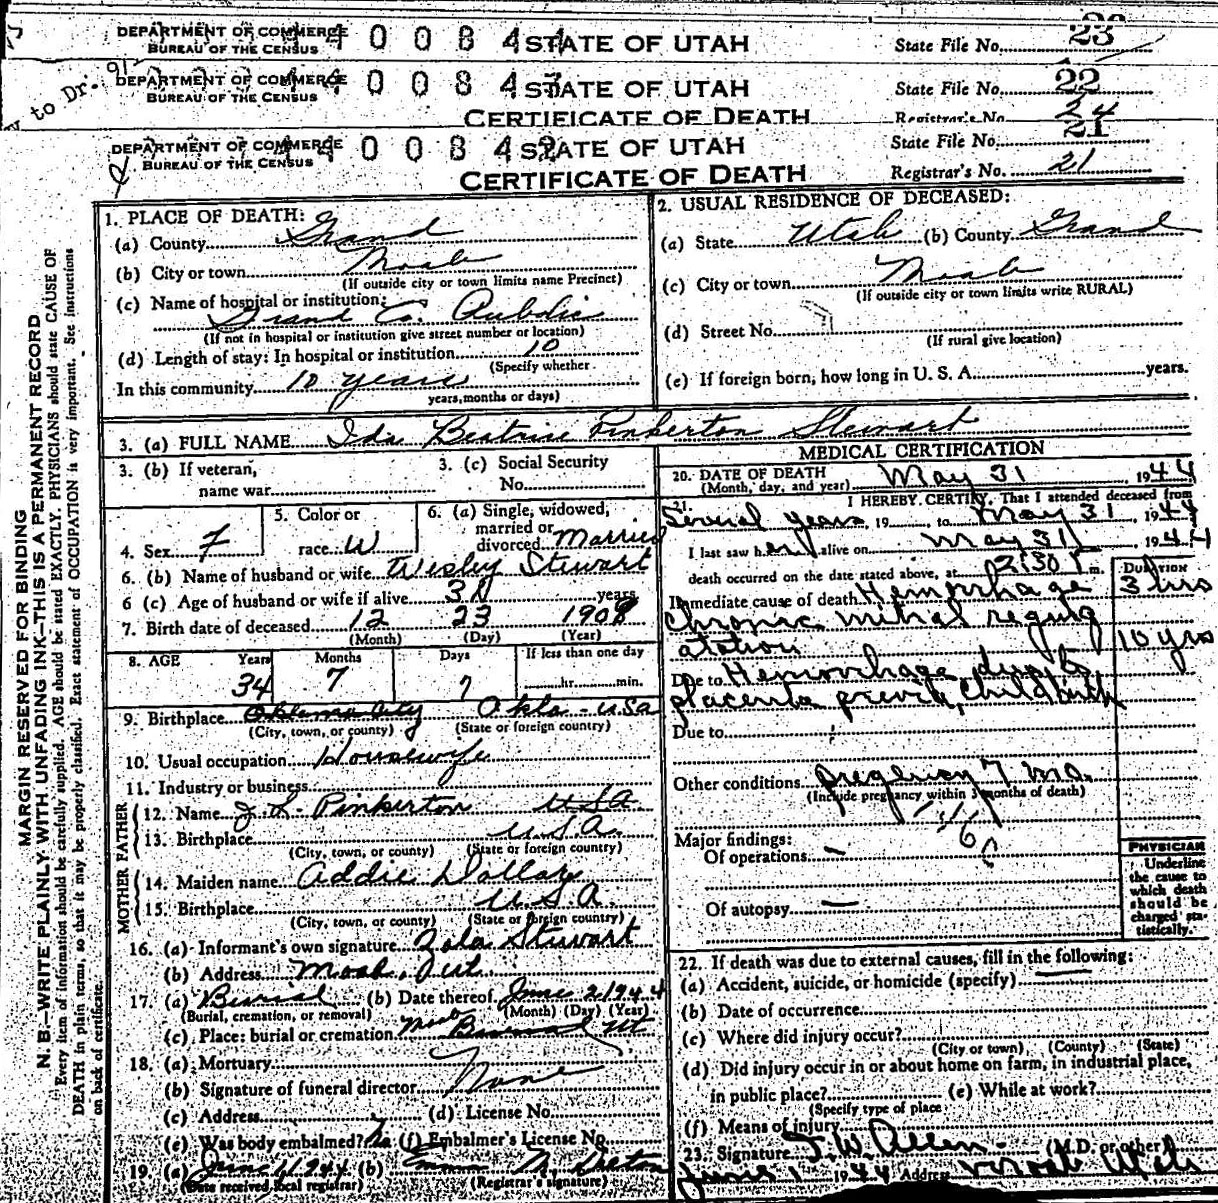 DEPARTMENT OF COMMERCE
BUREAU OF THE CENSUS
4 0 0 8 4 4
STATE OF UTAH
State File No. 23
to Dr. 91
DEPARTMENT OF COMMERCE
BUREAU OF THE CENSUS
4 0 0 8 4 3
STATE OF UTAH
State File No. 22
CERTIFICATE OF DEATH
Registrar's No. 24
DEPARTMENT OF COMMERCE
BUREAU OF THE CENSUS
4 0 0 8 4 2
STATE OF UTAH
State File No. 21
CERTIFICATE OF DEATH
Registrar's No. 21
MARGIN RESERVED FOR BINDING
N. B.—WRITE PLAINLY WITH UNFADING INK—THIS IS A PERMANENT RECORD
Every item of information should be carefully supplied. AGE should be stated EXACTLY. PHYSICIANS should state CAUSE OF
DEATH in plain terms, so that it may be properly classified. Exact statement of OCCUPATION is very important. See instructions
on back of certificate.
1. PLACE OF DEATH:
(a) County Grand
(b) City or town Moab
(If outside city or town limits name Precinct)
(c) Name of hospital or institution:
Grand Co. Public
(If not in hospital or institution give street number or location)
(d) Length of stay: In hospital or institution 10
(Specify whether
In this community 10 years
years, months or days)
2. USUAL RESIDENCE OF DECEASED:
(a) State Utah (b) County Grand
(c) City or town Moab
(If outside city or town limits write RURAL)
(d) Street No.
(If rural give location)
(e) If foreign born, how long in U. S. A. years.
3. (a) FULL NAME Ida Beatrice Pinkerton Stewart
3. (b) If veteran,
name war
3. (c) Social Security
No.
4. Sex F
5. Color or
race W
6. (a) Single, widowed,
married or
divorced Married
6. (b) Name of husband or wife Wesley Stewart
6 (c) Age of husband or wife if alive years
7. Birth date of deceased 12 23 1909
(Month) (Day) (Year)
8. AGE Years Months Days If less than one day
34 7 7 hr. min.
9. Birthplace Oklahoma City Okla - USA
(City, town, or county) (State or foreign country)
10. Usual occupation Housewife
11. Industry or business
FATHER
12. Name J. L. Pinkerton USA
13. Birthplace U.S.A.
(City, town, or county) (State or foreign country)
MOTHER
14. Maiden name Addie Dollar
15. Birthplace U.S.A.
(City, town, or county) (State or foreign country)
16. (a) Informant's own signature Zola Stewart
(b) Address Moab, Ut
17. (a) Burial (b) Date thereof June 2 1944
(Burial, cremation, or removal) (Month) (Day) (Year)
(c) Place: burial or cremation Moab Burial Ut
18. (a) Mortuary
(b) Signature of funeral director None
(c) Address (d) License No.
(e) Was body embalmed? No (f) Embalmer's License No.
19. (a) June 1 1944 (b) Emma M. Dalton
(Date received local registrar) (Registrar's signature)
MEDICAL CERTIFICATION
20. DATE OF DEATH
(Month, day, and year) May 31 1944
21. I HEREBY CERTIFY, That I attended deceased from
Several years 19 , to May 31, 1944
I last saw her alive on May 31, 1944
death occurred on the date stated above, at 2:30 P m.
DURATION
Immediate cause of death Hemorrhage 3 hrs
Chronic mitral regurg
atation 10 yrs
Due to Hemorrhage due to
placenta previa, Childbirth
Due to
Other conditions pregnancy 7 mo.
(Include pregnancy within 3 months of death)
146
Major findings:
Of operations —
Of autopsy —
PHYSICIAN
Underline
the cause to
which death
should be
charged sta-
tistically.
22. If death was due to external causes, fill in the following:
(a) Accident, suicide, or homicide (specify) —
(b) Date of occurrence
(c) Where did injury occur?
(City or town) (County) (State)
(d) Did injury occur in or about home on farm, in industrial place,
in public place? (e) While at work?
(Specify type of place
(f) Means of injury
23. Signature I. W. Allen (M.D. or other)
June 1 1944 Address Moab Utah